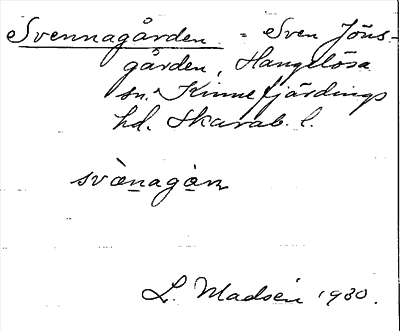 Svennagården = Sven Jöns-
gården, Hangelösa
sn. Kinnefjärdings
hd. Skarab. l.
svænagaɳ
L. Madsén 1930.